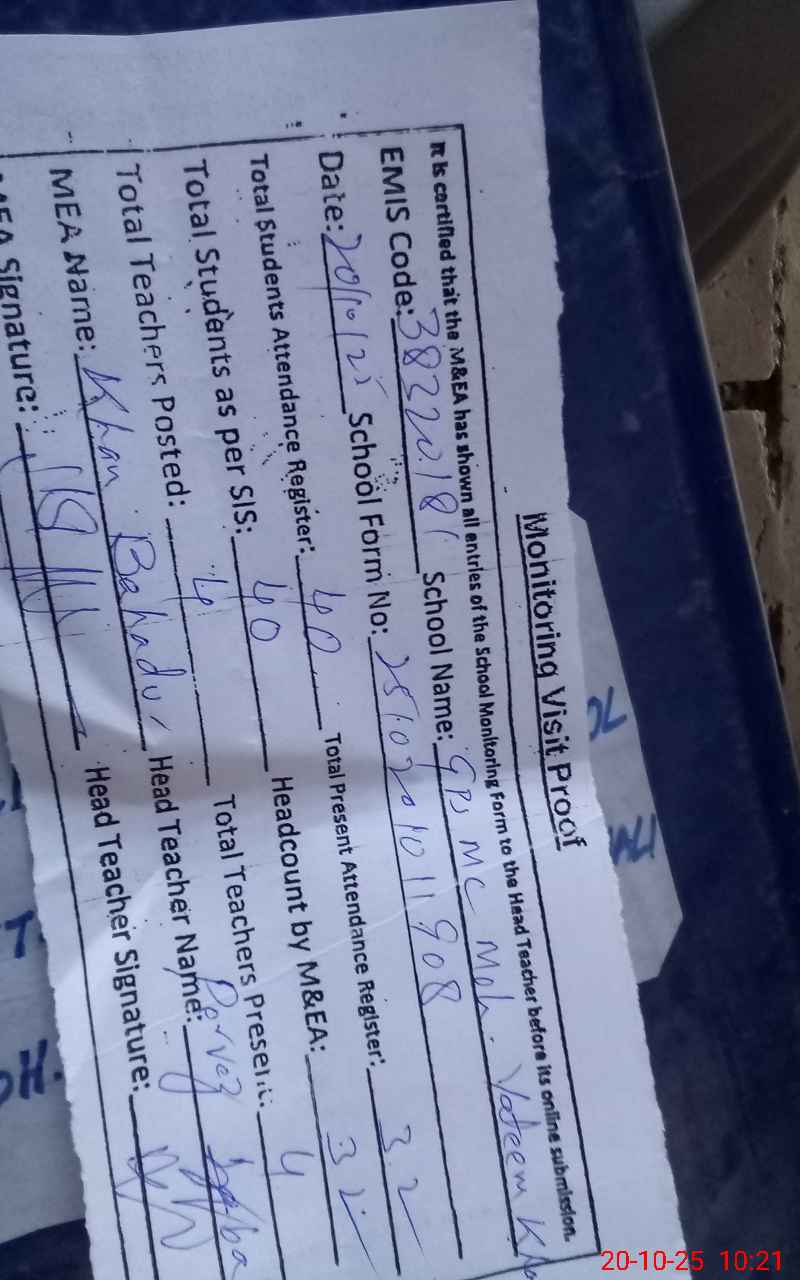 Monitoring Visit Proof
It is certified that the M&EA has shown all entries of the School Monitoring Form to the Head Teacher before its online submission.
EMIS Code: 38320181 School Name: GPS MC Moh.
Date: 20/10/25 School Form No: 2510201011908
Total Students Attendance Register: 40 Total Present Attendance Register: 32
Total Students as per SIS: 40 Headcount by M&EA: 32
Total Teachers Posted: 4 Total Teachers Present: 4
MEA Name: Khan Bahadur Head Teacher Name: Pervez
MEA Signature: Head Teacher Signature:
20-10-25 10:21